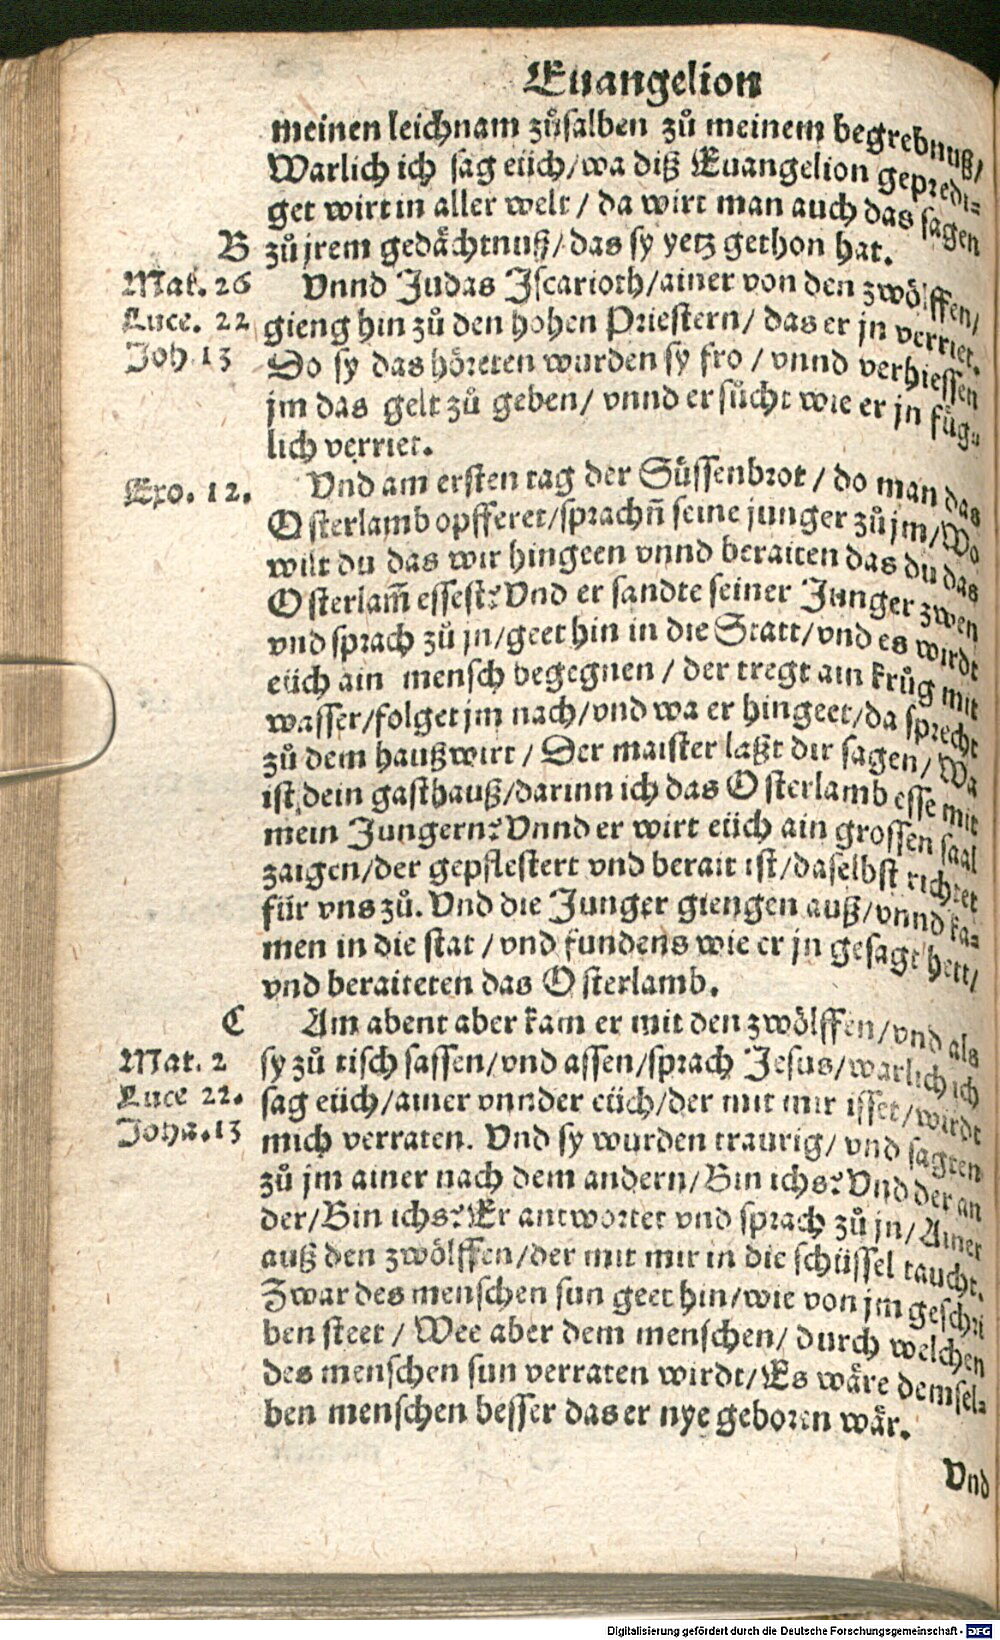 Euangelion
meinen leichnam zůsalben zů meinem begrebnuß/
Warlich ich sag eüch/wa diß Euangelion gepredi-
get wirt in aller welt / da wirt man auch das sagen
B zů jrem gedächtnuß/das sy yetz gethon hat.
Mat. 26 Vnnd Judas Iscarioth/ainer von den zwölffen/
Luce. 22 gieng hin zů den hohen Priestern/ das er jn verriet.
Joh 13 Do sy das höreten wurden sy fro / vnnd verhiessen
jm das gelt zů geben/ vnnd er sůcht wie er jn füg-
lich verriet.
Exo. 12. Vnd am ersten tag der Süssenbrot / do man das
Osterlamb opfferet/sprachn̄ seine junger zů jm/Wo
wilt du das wir hingeen vnnd beraiten das du das
Osterlam̄ essest? Vnd er sandte seiner Junger zwen
vnd sprach zů jn/geet hin in die Statt/vnd es wirdt
eüch ain mensch begegnen / der tregt ain krůg mit
wasser/folget jm nach/vnd wa er hingeet/da sprecht
zů dem haußwirt / Der maister laßt dir sagen/ Wa
ist dein gasthauß/darinn ich das Osterlamb esse mit
mein Jungern? Vnnd er wirt eüch ain grossen saal
zaigen/der gepflestert vnd berait ist/daselbst richtet
für vns zů. Vnd die Junger giengen auß/vnnd ka-
men in die stat / vnd fundens wie er jn gesagt hett/
vnd beraiteten das Osterlamb.
C Am abent aber kam er mit den zwölffen/vnd als
Mat. 2 sy zů tisch sassen/vnd assen/sprach Jesus/warlich ich
Luce 22. sag eüch/ainer vnnder eüch/der mit mir isset/wirdt
Joha.13 mich verraten. Vnd sy wurden traurig/ vnd sagten
zů jm ainer nach dem andern/Bin ichs? Vnd der an
der/Bin ichs? Er antwortet vnd sprach zů jn/ Ainer
auß den zwölffen/der mit mir in die schüssel taucht.
Zwar des menschen sun geet hin/wie von jm geschri
ben steet / Wee aber dem menschen/ durch welchen
des menschen sun verraten wirdt/Es wäre demsel-
ben menschen besser das er nye geboren wär.
Vnd
Digitalisierung gefördert durch die Deutsche Forschungsgemeinschaft - DFG